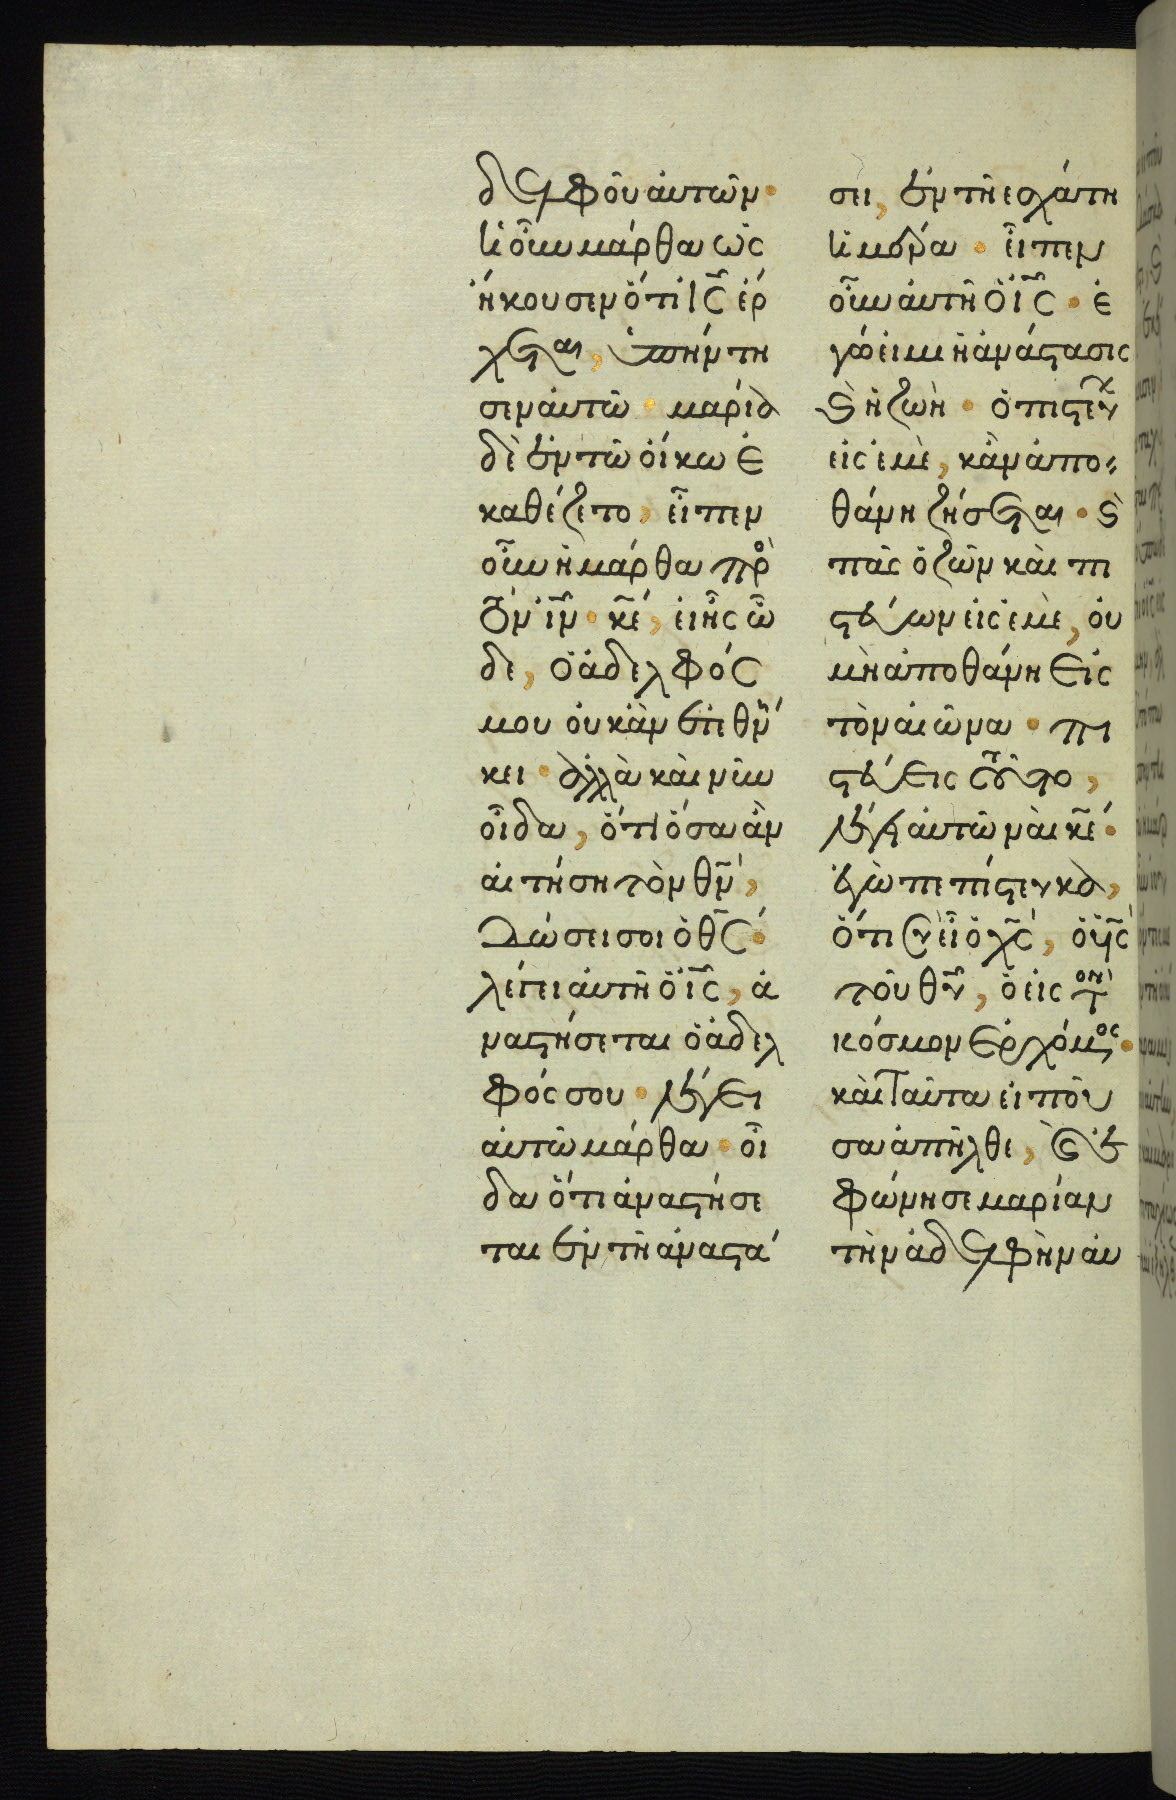 δελφοῦ αὐτῶν·
ἡ οὖν μάρθα ὡς
ἤκουσεν ὅτι ἰς̅ ἔρ
χεται, ὑπήντη
σεν αὐτῶ· μαρία
δὲ ἐν τῶ οἴκω ἐ
καθέζετο, εἶπεν
οὖν ἡ μάρθα πρὸ
τὸν ἰν̅· κε̅, εἰ ἦς ὧ
δε, ὁ ἀδελφός
μου οὐκ ἂν ἐτεθνή
κει· ἀλλὰ καὶ νῦν
οἶδα, ὅτι ὅσα ἂν
αἰτήση τὸν θν̅,
δώσει σοι ὁ θς̅·
λέγει αὐτῆ ὁ ἰς̅, ἀ
ναστήσεται ὁ ἀδελ
φός σου· λέγει
αὐτῶ μάρθα· οἶ
δα ὅτι ἀναστήσε
ται ἐν τῆ ἀναστά
σει, ἐν τῆ ἐσχάτη
ἡμέρα· εἶπεν
οὖν αὐτῆ ὁ ἰς̅· ἐ
γώ εἰμι ἡ ἀνάστασις
καὶ ἡ ζωὴ· ὁ πιστεύων
εἰς ἐμὲ, κἂν ἀπο
θάνη ζήσεται· καὶ
πᾶς ὁ ζῶν καὶ πι
στεύων εἰς ἐμὲ, οὐ
μὴ ἀποθάνη εἰς
τὸν αἰῶνα· πι
στεύεις τοῦτο,
λέγει αὐτῶ ναὶ κε̅·
ἐγὼ πεπίστευκα,
ὅτι σὺ εἶ ὁ χς̅, ὁ υἱς̅
τοῦ θυ̅, ὁ εἰς τὸν
κόσμον ἐρχόμενος·
καὶ ταῦτα εἰποῦ
σα ἀπῆλθε, καὶ ἐ
φώνησε μαρίαν
τὴν ἀδελφὴν αὐ